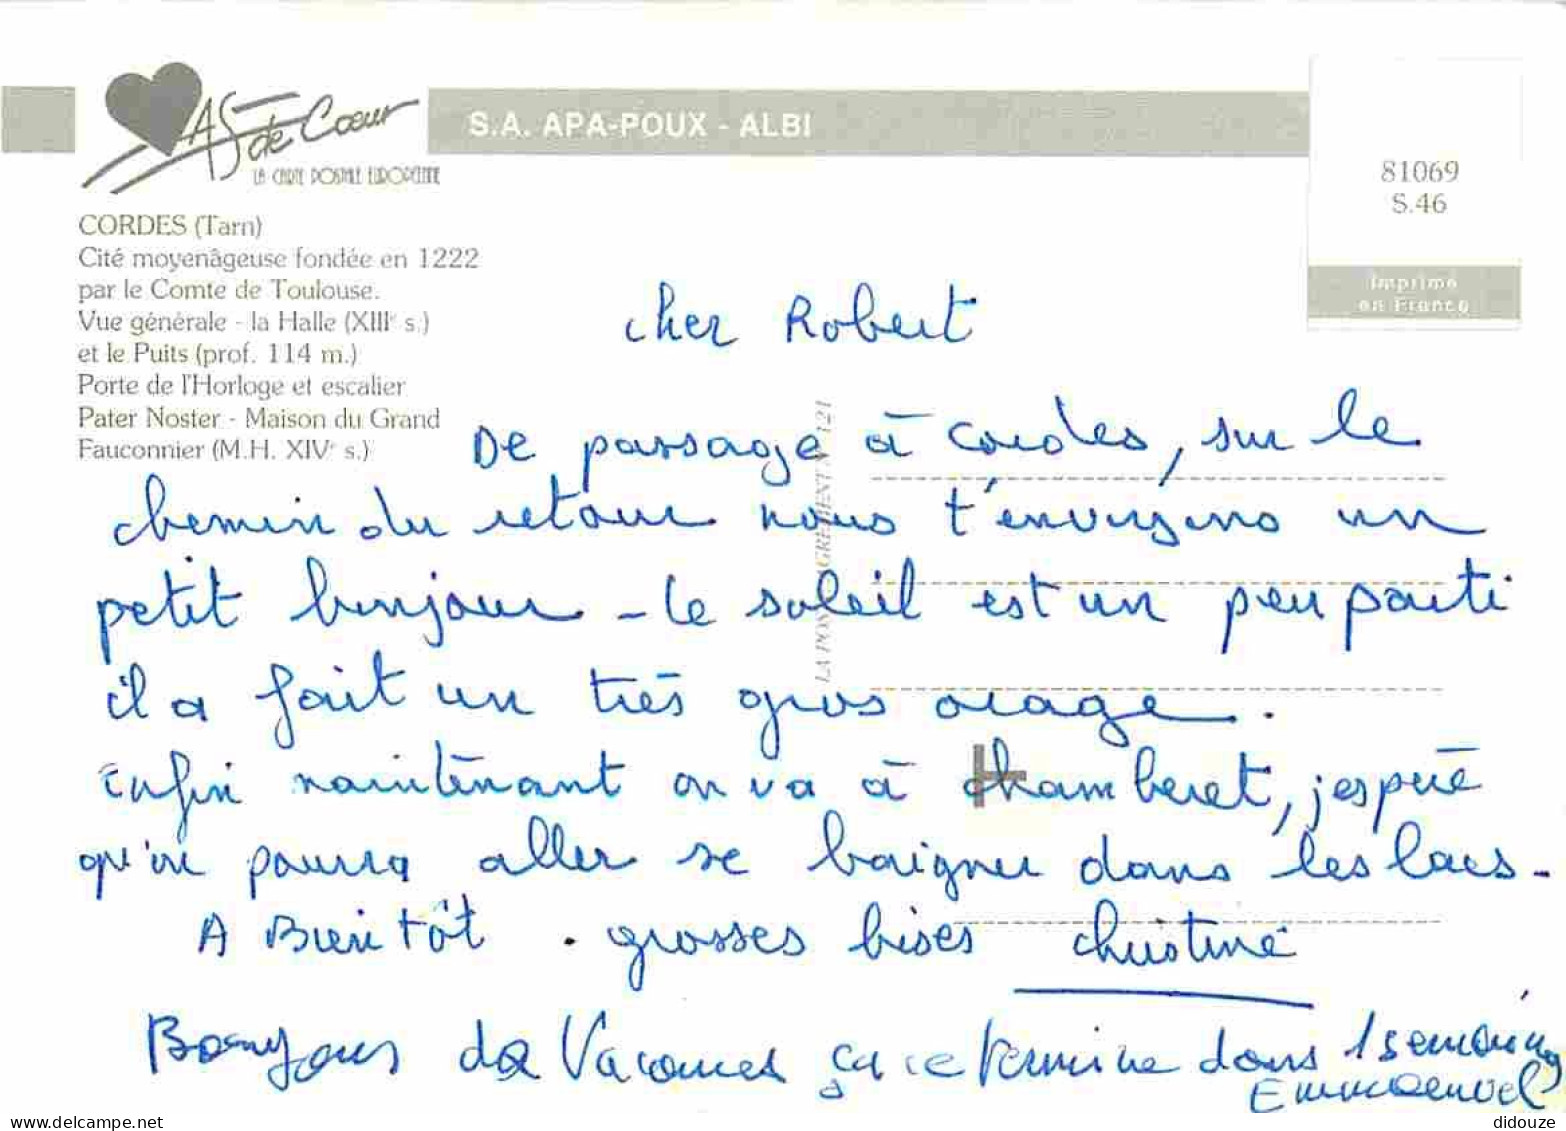 AS de Cœur
LA CARTE POSTALE EUROPÉENNE
S.A. APA-POUX - ALBI
81069
S.46
Imprimé
en France
CORDES (Tarn)
Cité moyenâgeuse fondée en 1222
par le Comte de Toulouse.
Vue générale - la Halle (XIIIᵉ s.)
et le Puits (prof. 114 m.)
Porte de l'Horloge et escalier
Pater Noster - Maison du Grand
Fauconnier (M.H. XIVᵉ s.)
LA POSTE AGRÉMENT N° 121
cher Robert
De passage à Cordes, sur le
chemin du retour nous t'envoyons un
petit bonjour - le soleil est un peu parti
il a fait un très gros orage.
Enfin maintenant on va à Chamberet, j'espère
qu'on pourra aller se baigner dans les lacs-
A Bientôt . grosses bises Christine
Bonjour de Vacances ça ce termine dans 1 semaine
Emmanuel
didouze